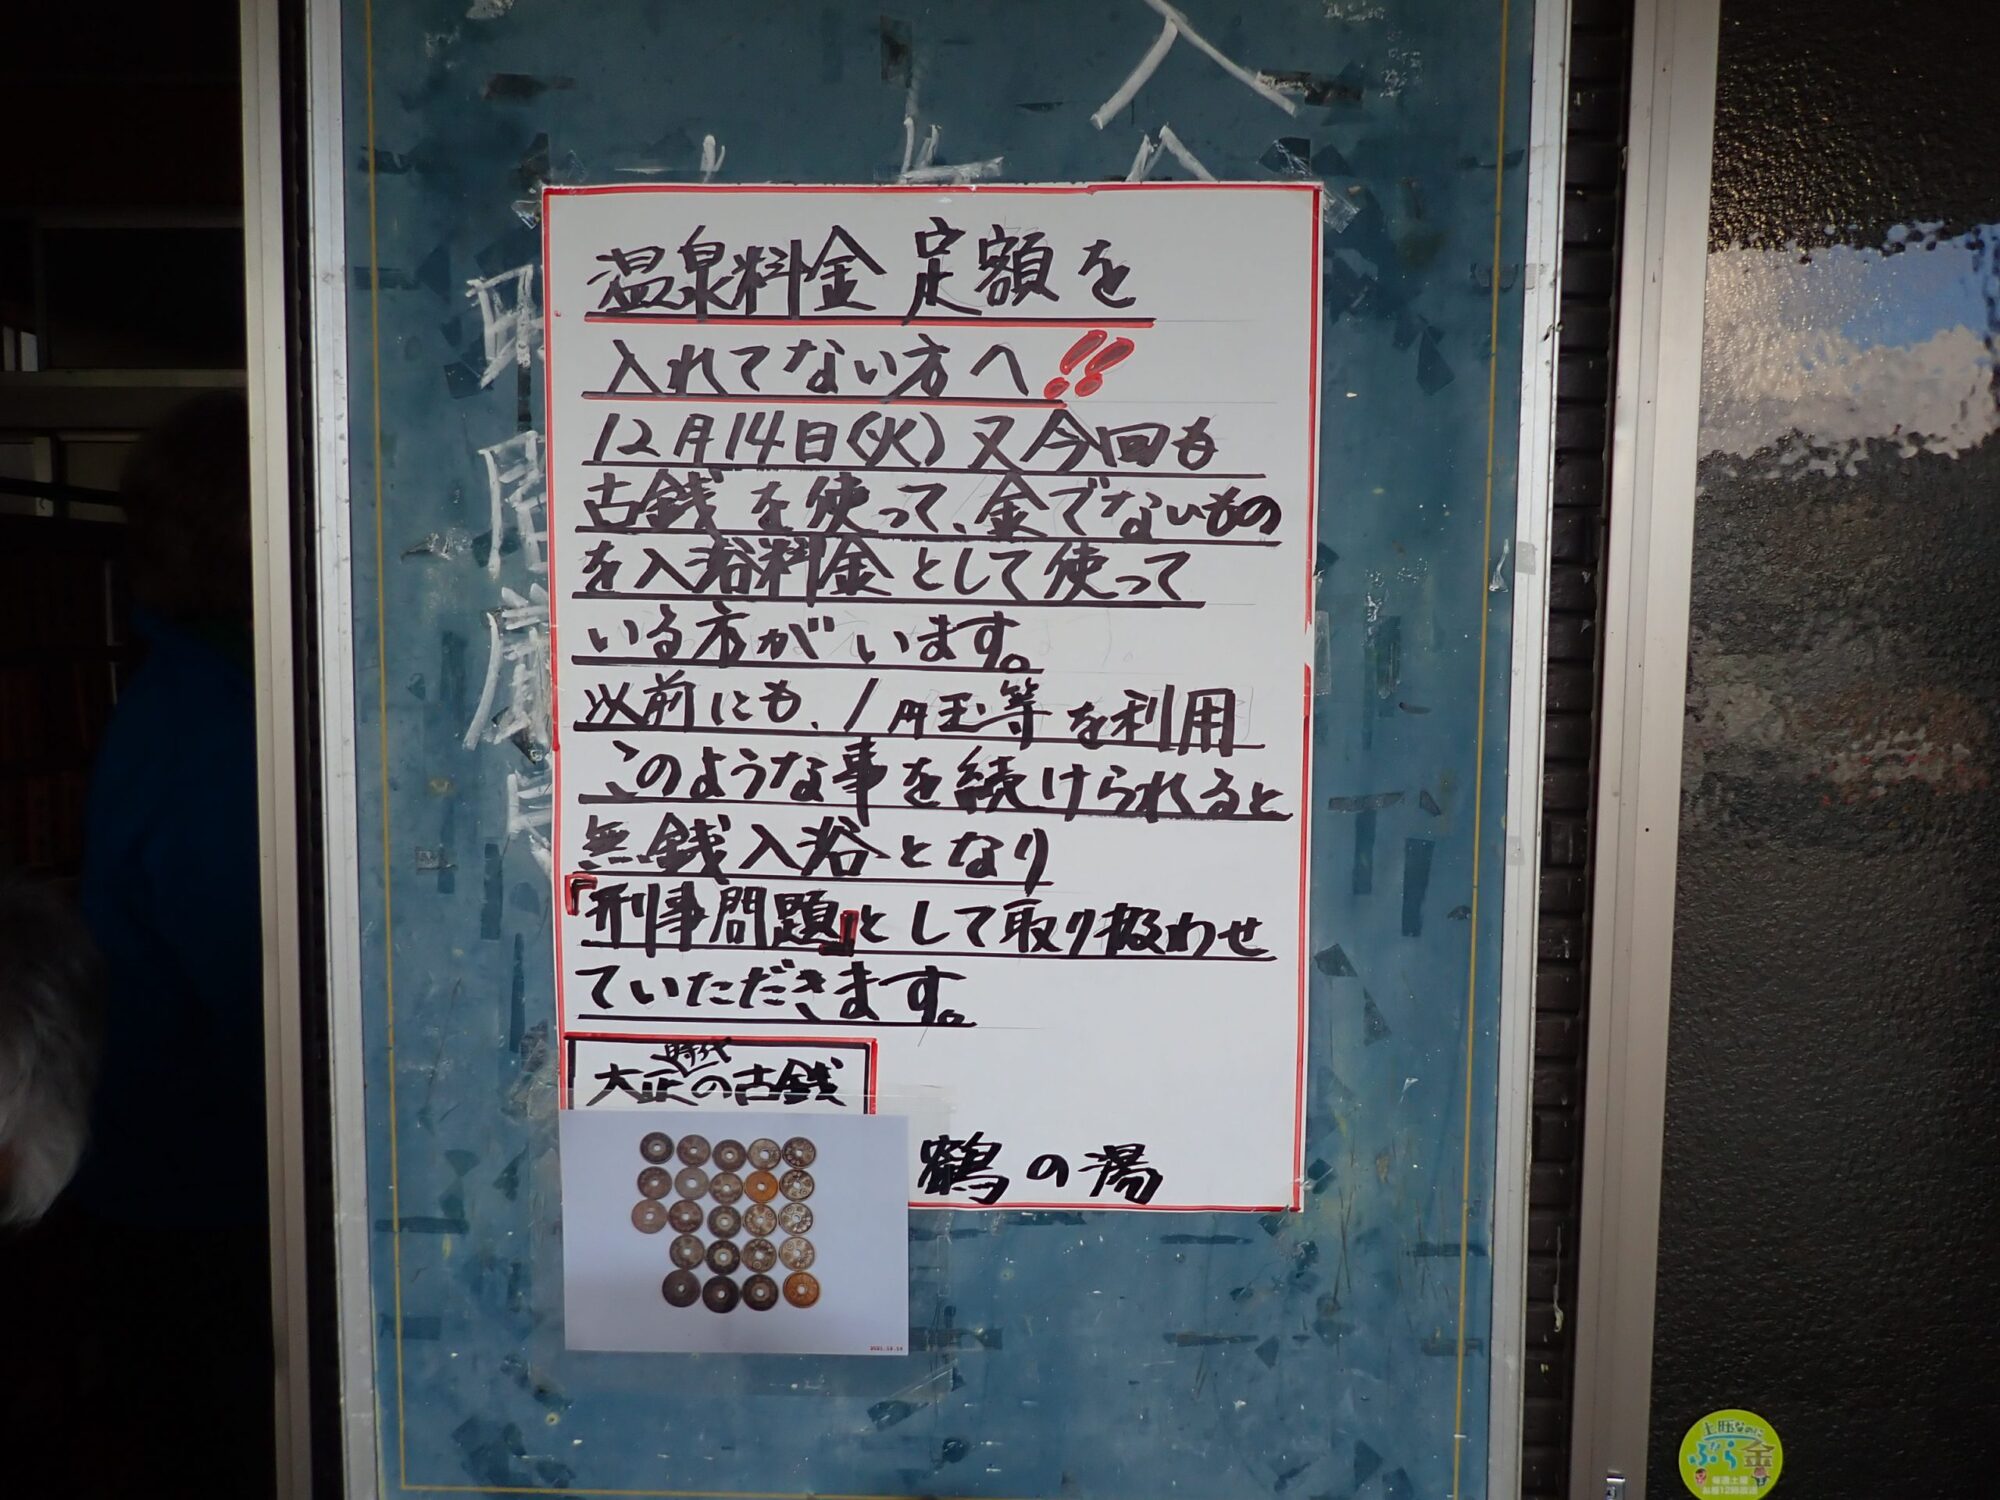 温泉料金 定額を
入れてない方へ!!
12月14日(火)又今回も
古銭を使って、金でないもの
を入浴料金として使って
いる方がいます。
以前にも、1円玉等を利用
このような事を続けられると
無銭入浴となり
『刑事問題』として取り扱わせ
ていただきます。
大正時代の古銭
鶴の湯
ぶら金
毎週土曜
お昼12時放送